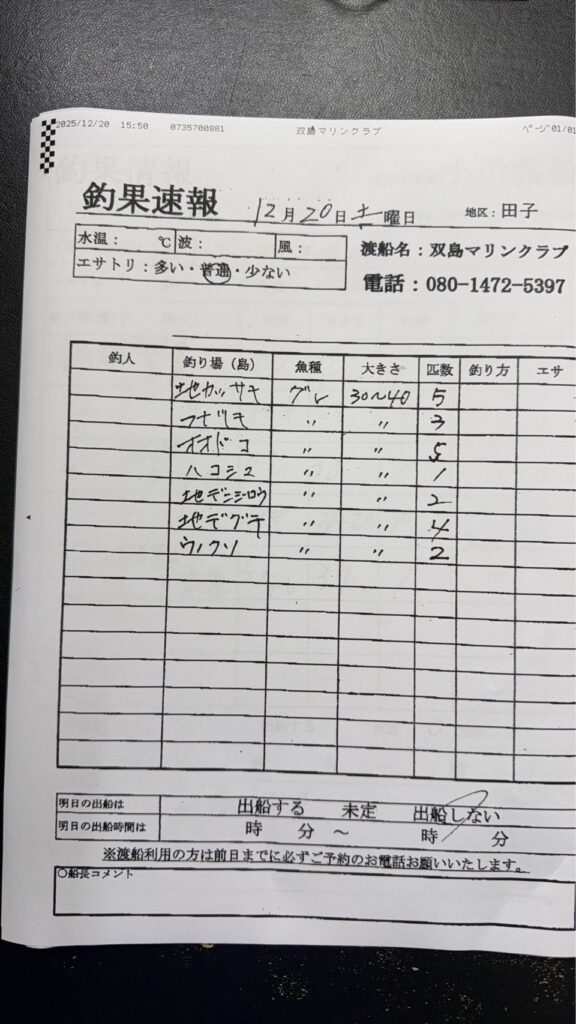 2025/12/20 15:50 0735700881 双島マリンクラブ ﾍﾟｰｼﾞ 01/01
釣果速報 12月20日土曜日 地区：田子
水温： ℃ 波： 風：
エサトリ：多い・普通・少ない
渡船名：双島マリンクラブ
電話：080-1472-5397
釣人 釣り場（島） 魚種 大きさ 匹数 釣り方 エサ
地カッサキ グレ 30〜40 5
〃 〃 3
オオドコ 〃 〃 5
ハコシマ 〃 〃 1
地デンジロウ 〃 〃 2
地デグチ 〃 〃 4
ウノクソ 〃 〃 2
明日の出船は 出船する 未定 出船しない
明日の出船時間は 時 分 〜 時 分
※渡船利用の方は前日までに必ずご予約のお電話お願いいたします。
○船長コメント